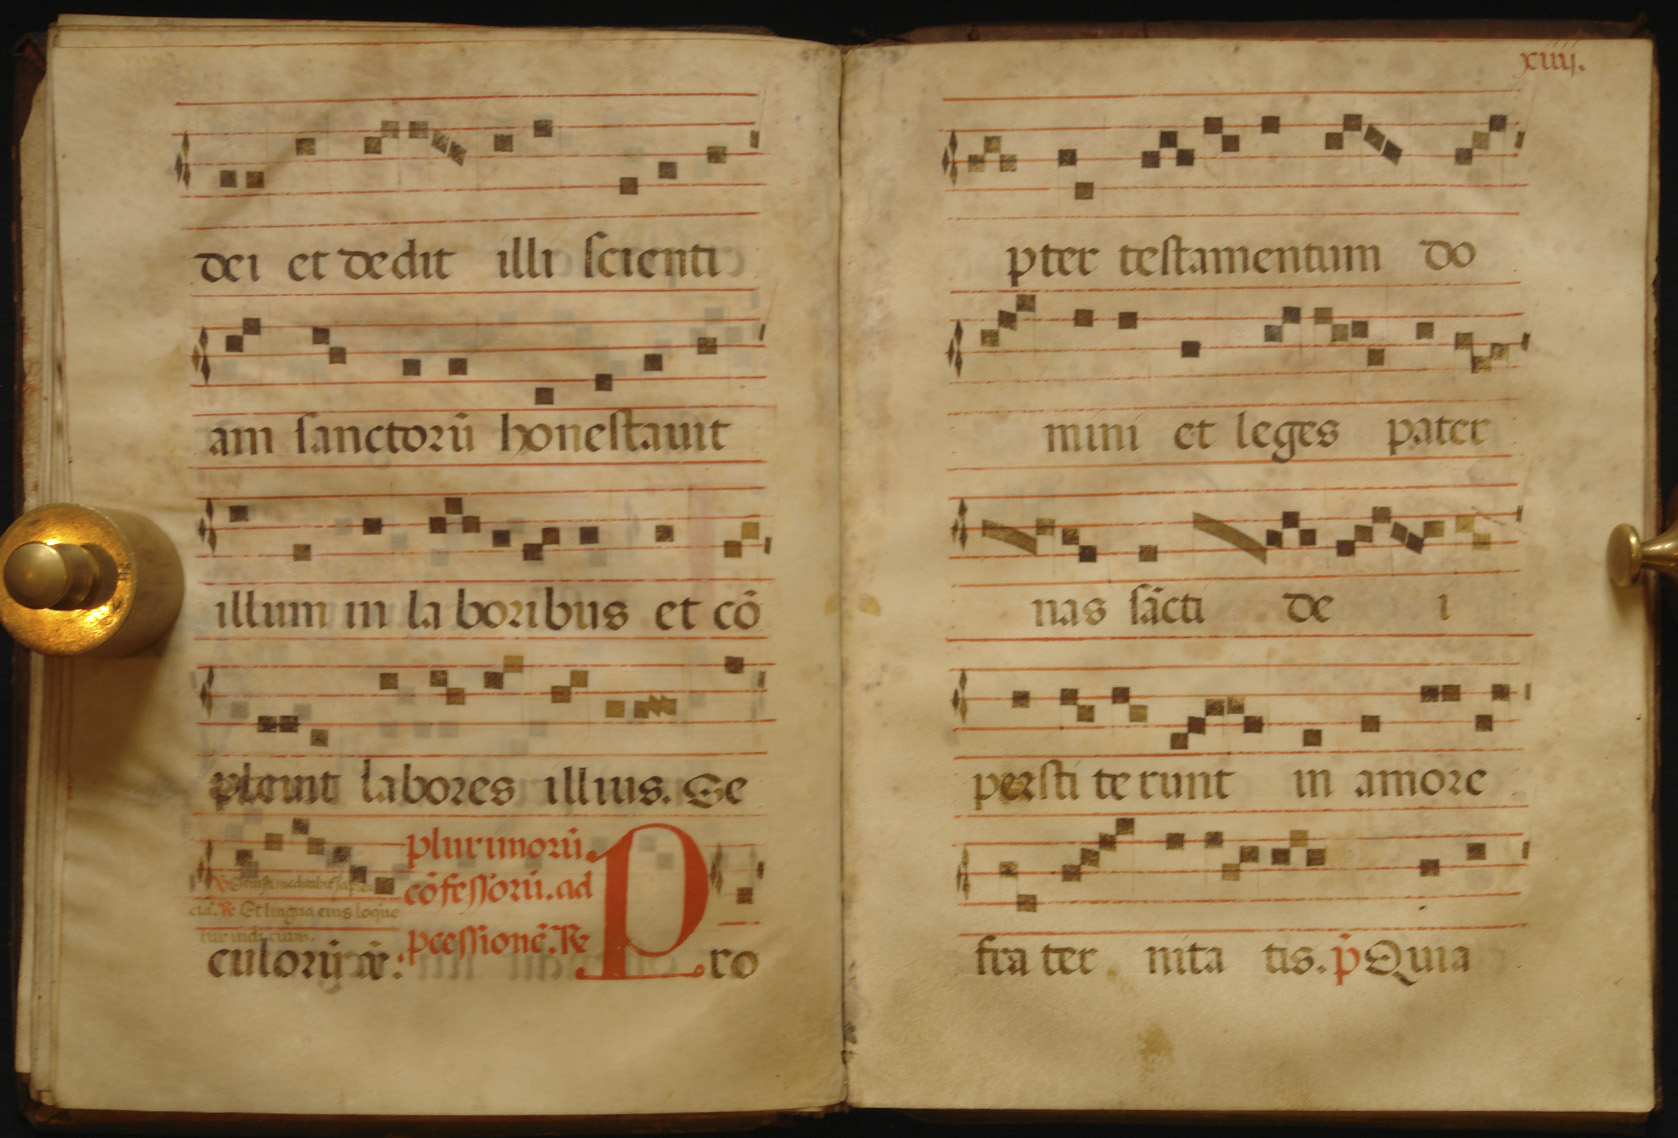 dei et dedit illi scienti
am sanctorū honestauit
illum in la boribus et cō
pleuit labores illius. Se
plurimorū
cōfessorū. ad
pcessionē. Re
culorū
Pro
xiiij.
pter testamentum do
mini et leges pater
nas sācti de i
persti te runt in amore
fra ter nita tis. p̄ Quia